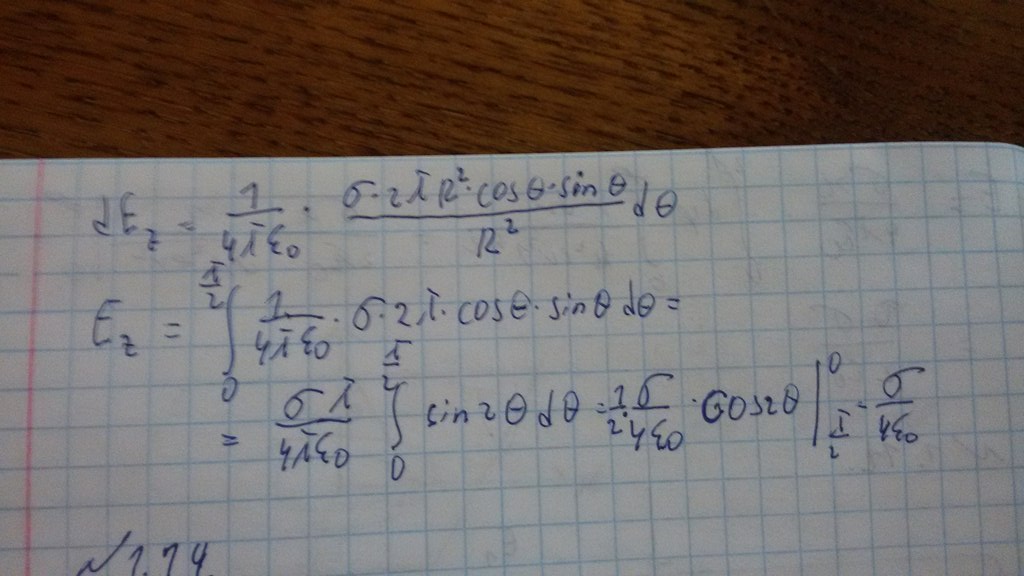 dE_z = 1/(4πε₀) · (σ·2πR²·cosθ·sinθ)/R² dθ
E_z = ∫₀^(π/2) 1/(4πε₀) · σ·2π·cosθ·sinθ dθ =
= σπ/(4πε₀) ∫₀^(π/2) sin2θ dθ = 1/2 · σ/(4ε₀) · cos2θ |_(π/2)^0 = σ/(4ε₀)
√1.14.